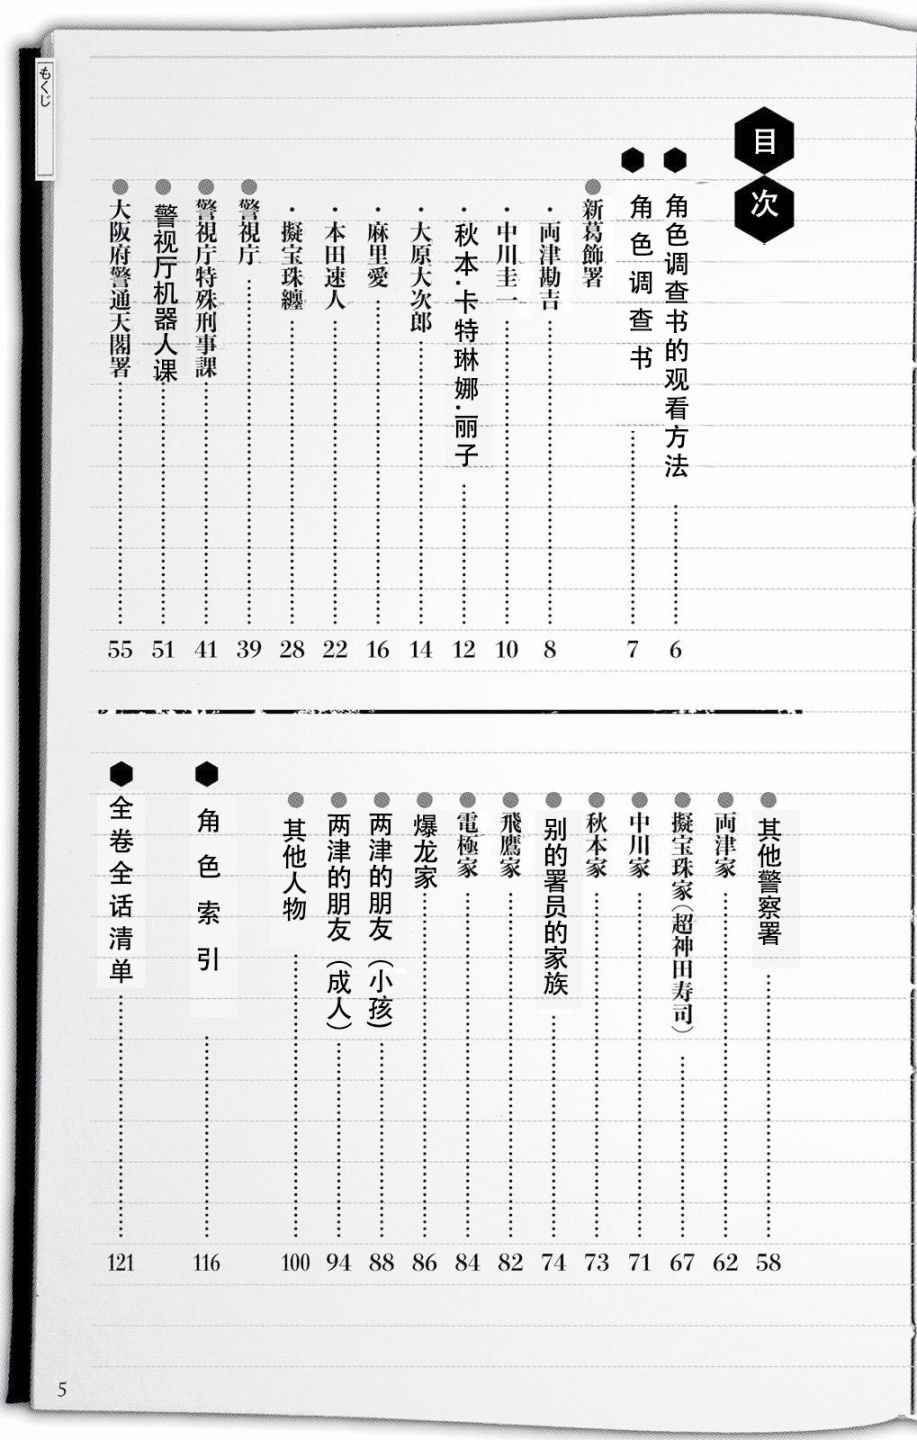 もくじ
目次
角色调查书的观看方法 6
角色调查书 7
新葛飾署
・両津勘吉 8
・中川圭一 10
・秋本·卡特琳娜·丽子 12
・大原大次郎 14
・麻里愛 16
・本田速人 22
・擬宝珠纏 28
警視庁 39
警視庁特殊刑事課 41
警视厅机器人课 51
大阪府警通天閣署 55
其他警察署 58
両津家 62
擬宝珠家(超神田寿司) 67
中川家 71
秋本家 73
别的署员的家族 74
飛鷹家 82
電極家 84
爆龙家 86
两津的朋友(小孩) 88
两津的朋友(成人) 94
其他人物 100
角色索引 116
全卷全话清单 121
5